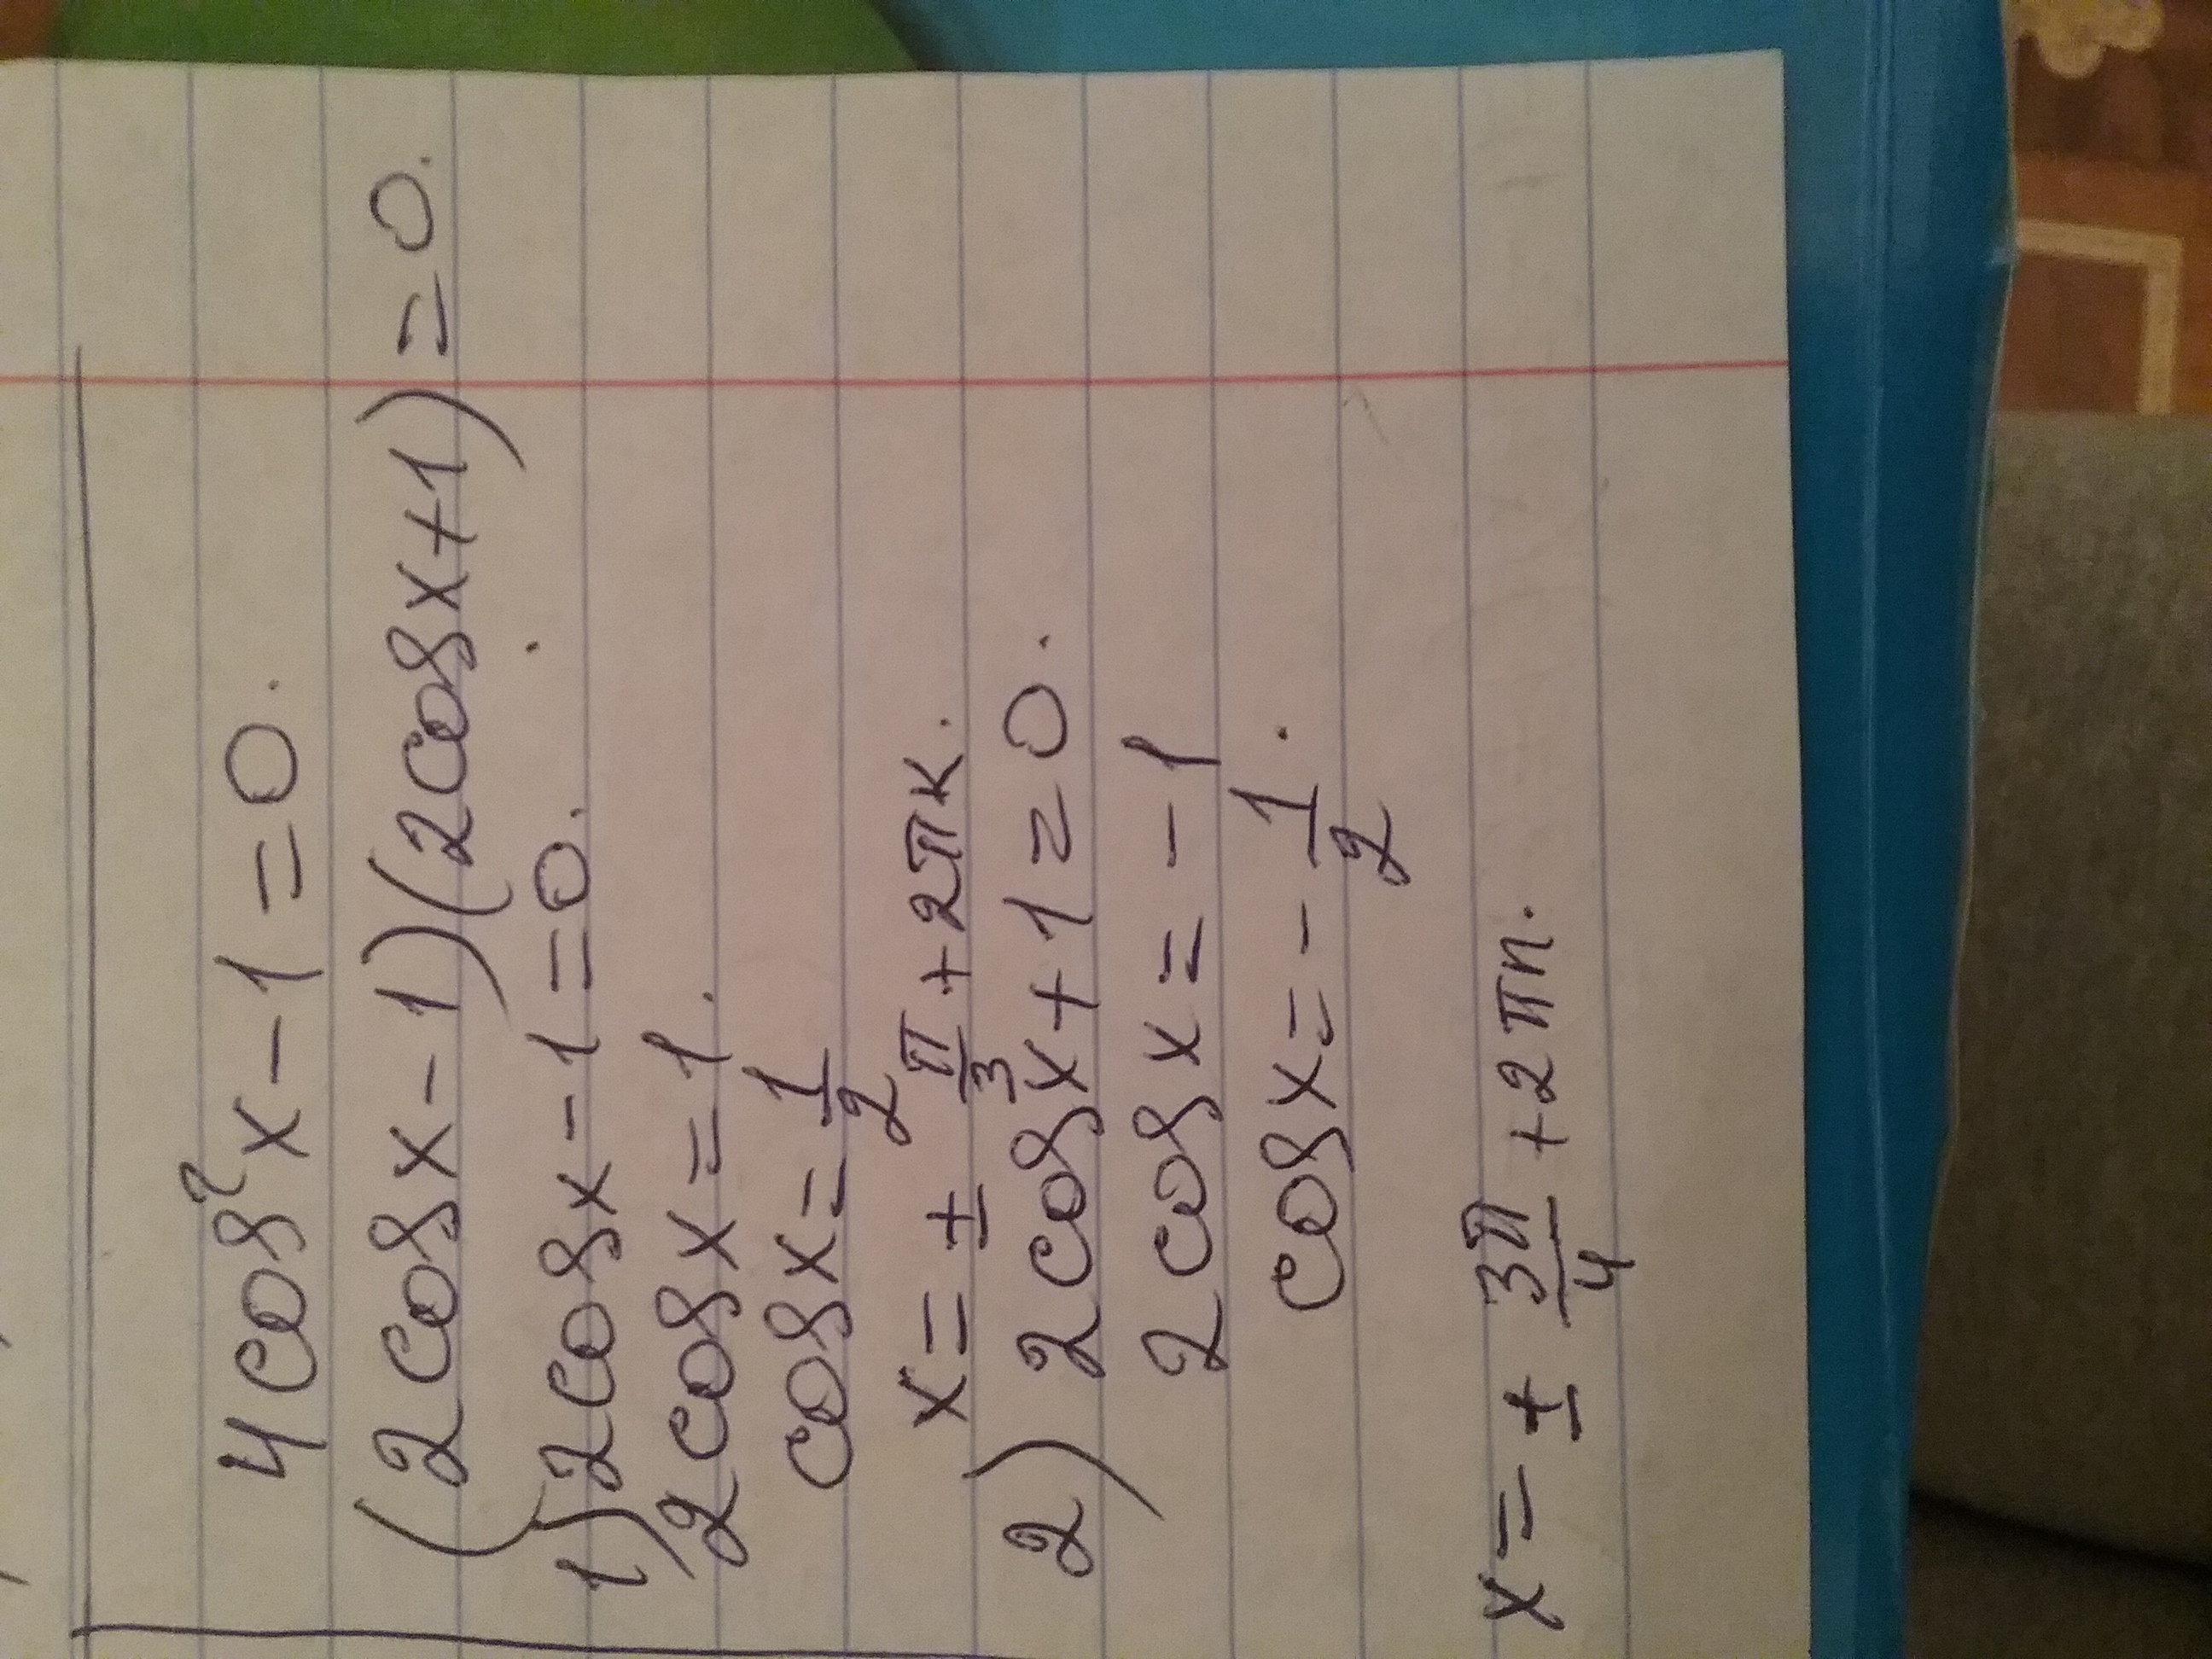 4cos²x-1=0.
(2cosx-1)(2cosx+1)=0.
1) 2cosx-1=0.
2cosx=1.
cosx=1/2
x=± π/3 +2πk.
2) 2cosx+1=0.
2cosx=-1
cosx=-1/2.
x=± 3π/4 +2πn.